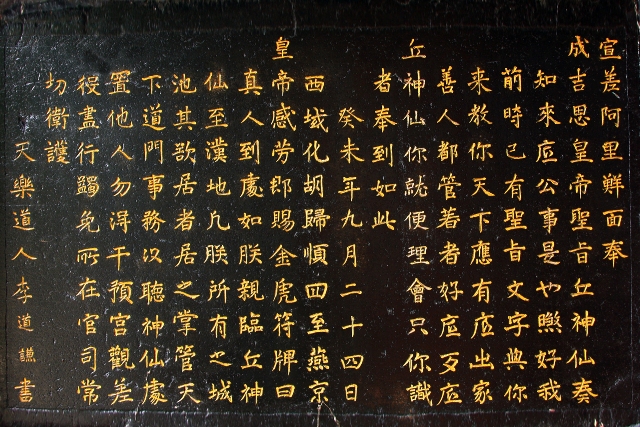 宣差阿里鮮面奉
成吉思皇帝聖旨丘神仙奏
知來底公事是也煞好我
前時已有聖旨文字與你
來教你天下應有底出家
善人都管着者好底歹底
丘神仙你就便理會只你識
者奉到如此
癸未年九月二十四日
西域化胡歸順回至燕京
皇帝感勞即賜金虎符牌曰
真人到處如朕親臨丘神
仙至漢地凡朕所有之城
池其欲居者居之掌管天
下道門事務以聽神仙處
置他人勿得干預宮觀差
役盡行蠲免所在官司常
切衛護
天樂道人李道謙書